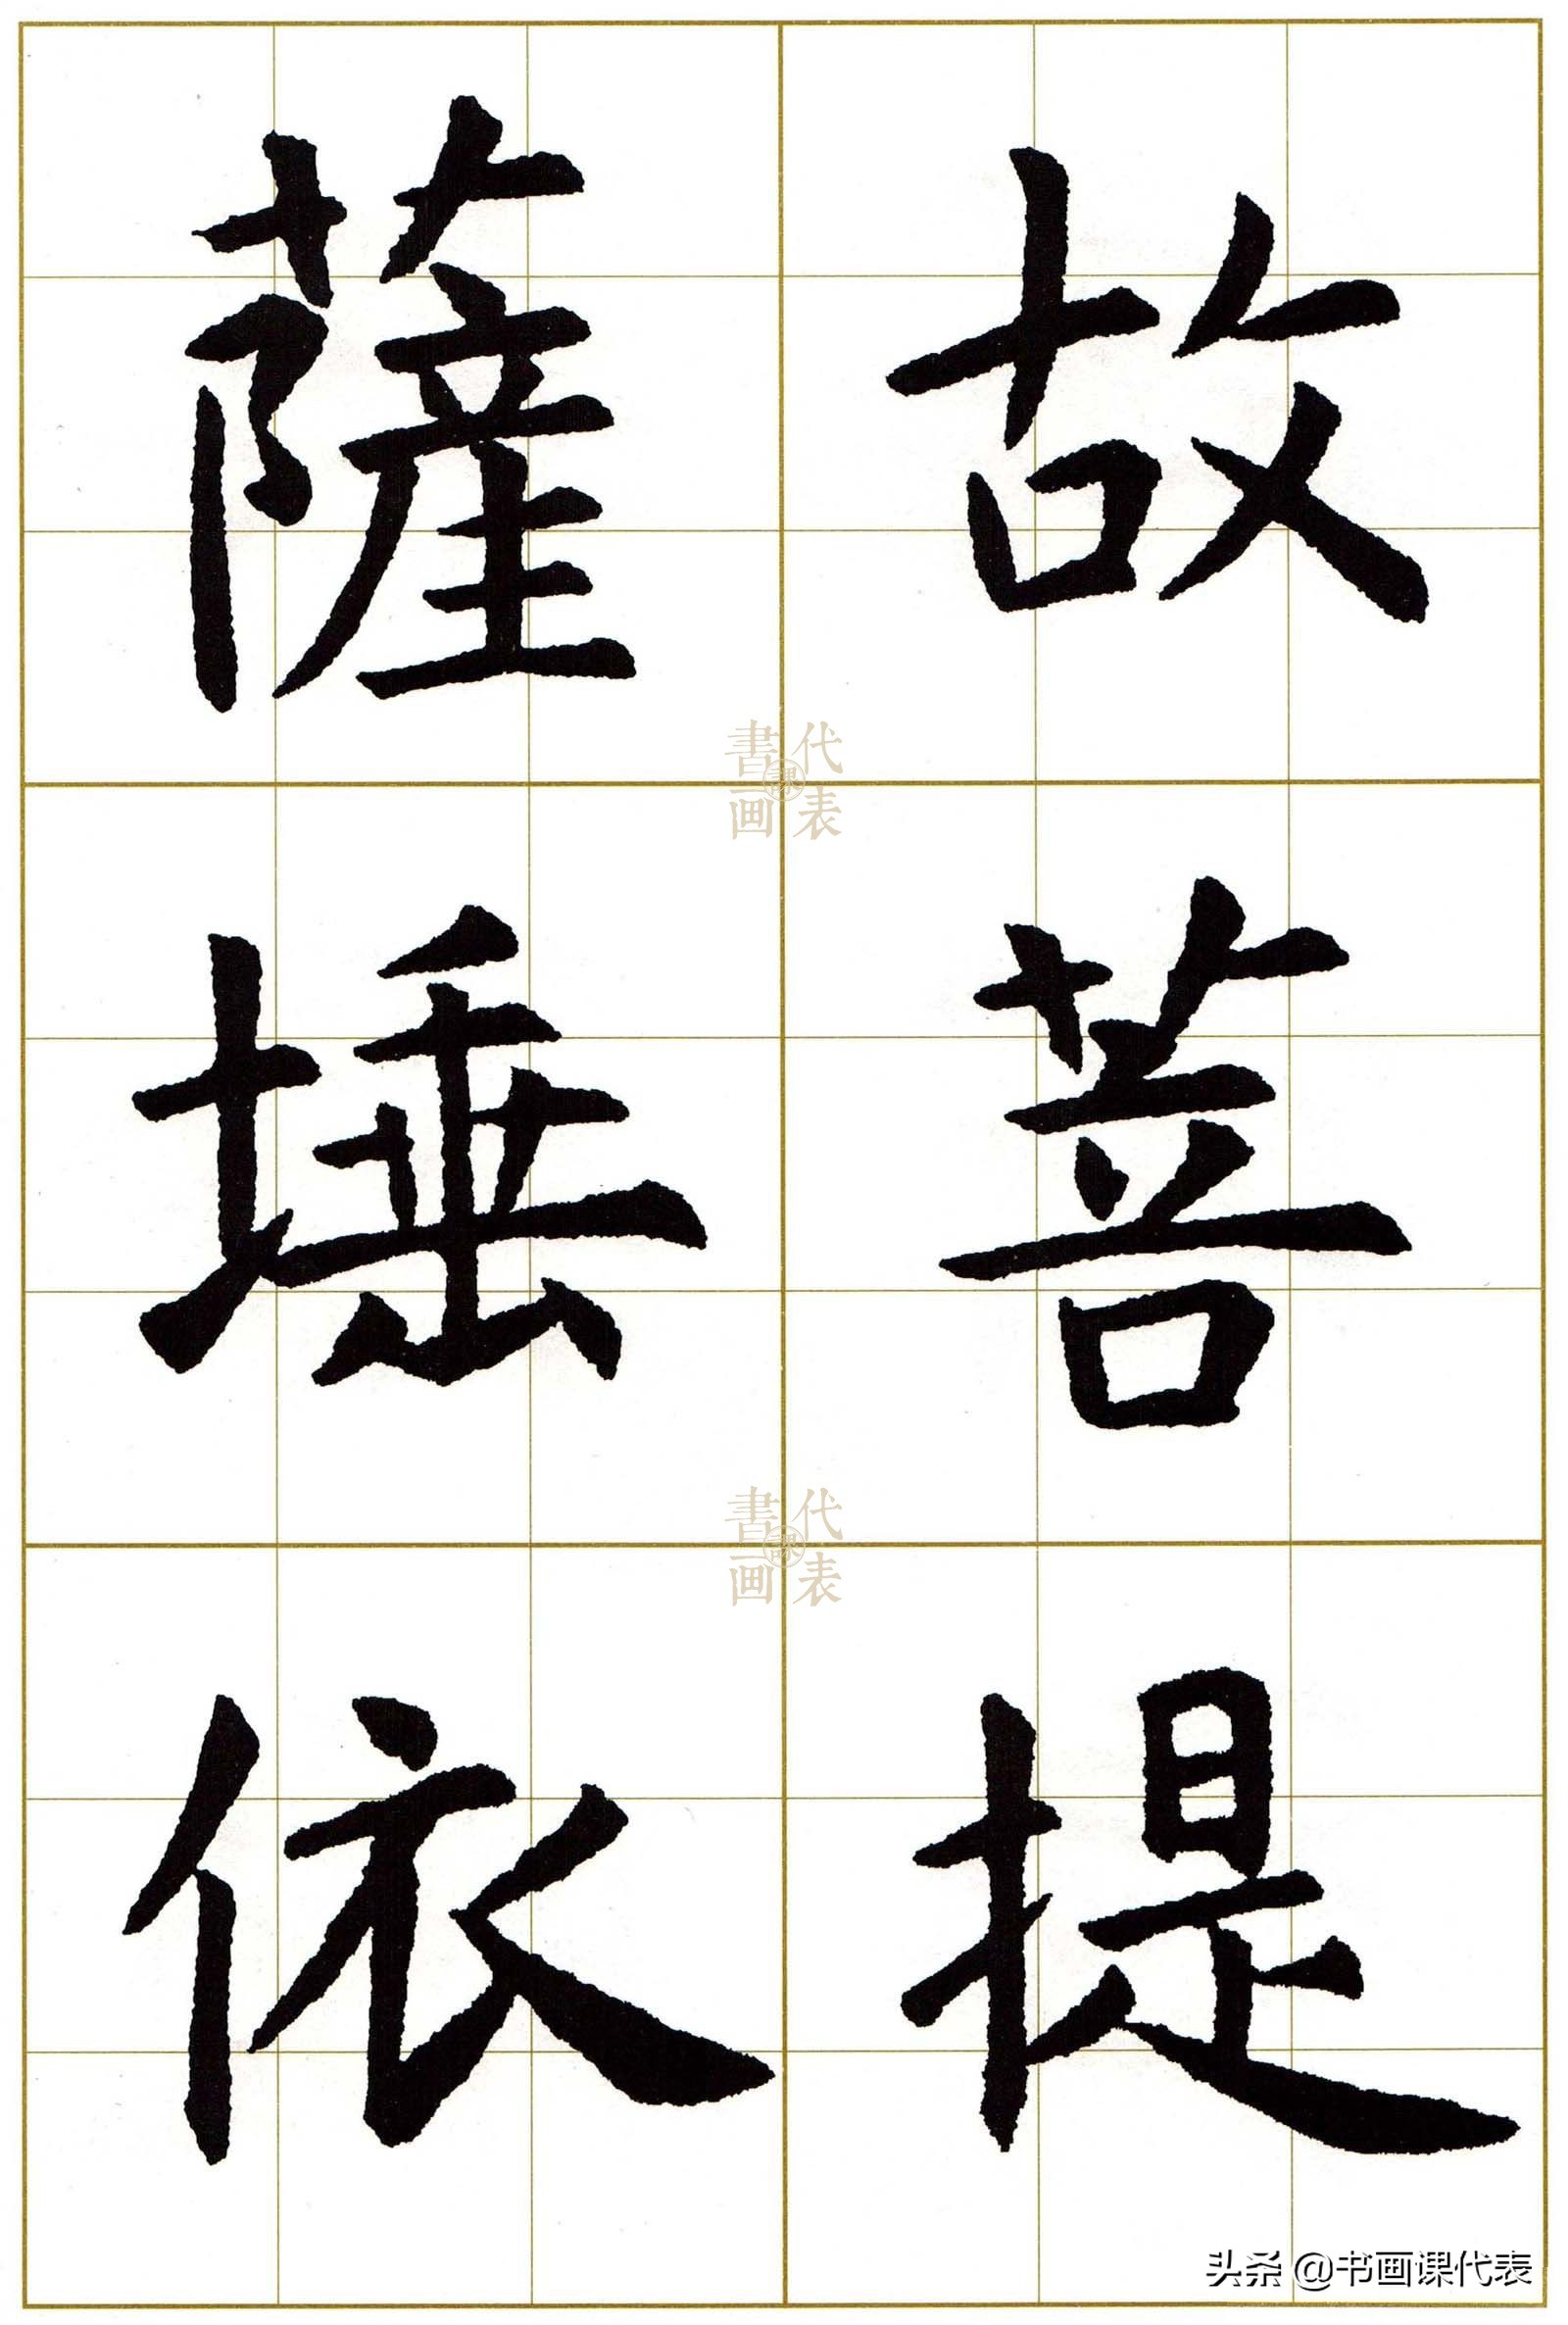 故菩提
薩埵依
書画課代表
書画課代表
头条 @书画课代表